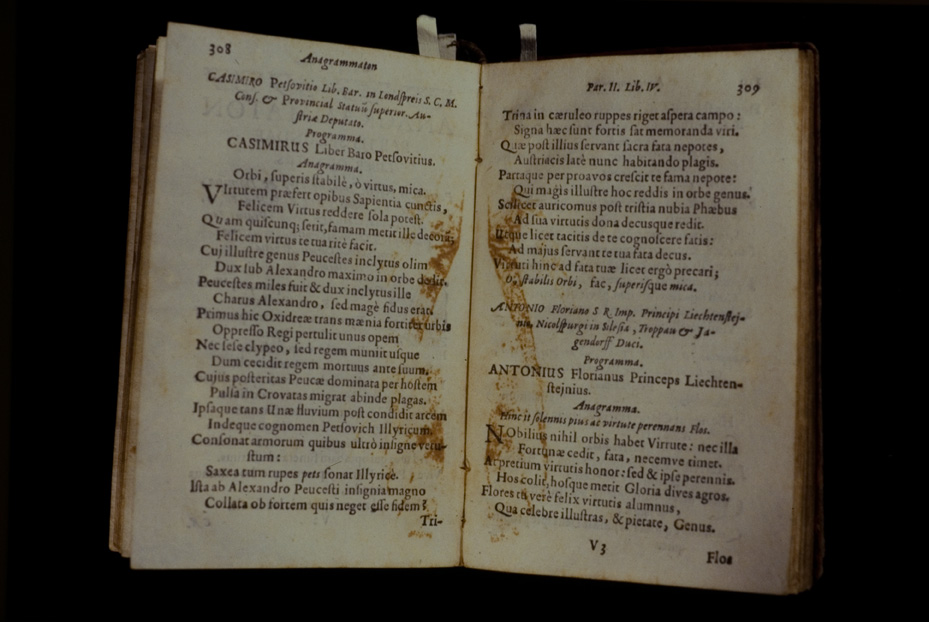 308
Anagrammaton
CASIMIRO Petſovitio Lib. Bar. in Landſpreis S. C. M.
Conſ. & Provincial Statuũ ſuperior. Au-
ſtriæ Deputato.
Programma.
CASIMIRUS Liber Baro Petſovitius.
Anagramma.
Orbi, ſuperis ſtabilè, ò virtus, mica.
VIrtutem præfert opibus Sapientia cunctis,
Felicem Virtus reddere ſola poteſt.
Quam quiſcunq; ſerit, famam metit ille decorã;
Felicem virtus te tua ritè facit.
Cui illuſtre genus Peuceſtes inclytus olim
Dux ſub Alexandro maximo in orbe dedit.
Peuceſtes miles fuit & dux inclytus ille
Charus Alexandro, ſed magè fidus erat.
Primus hic Oxidreæ trans mænia fortiter urbis
Oppreſſo Regi pertulit unus opem
Nec ſeſe clypeo, ſed regem muniit uſque
Dum cecidit regem mortuus ante ſuum.
Cujus poſteritas Peucæ dominata per hoſtem
Pulſa in Crovatas migrat abinde plagas.
Ipſaque tans Unæ fluvium poſt condidit arcem
Indeque cognomen Petſovich Illyricum.
Conſonat armorum quibus ultrò inſigne vetu-
ſtum:
Saxea tum rupes pets ſonat Illyricè.
Iſta ab Alexandro Peuceſti inſignia magno
Collata ob fortem quis neget eſſe fidem?
Tri-
Par. II. Lib. IV.
309
Trina in cæruleo ruppes riget aſpera campo:
Signa hæc ſunt fortis ſat memoranda viri.
Quæ poſt illius ſervant ſacra fata nepotes,
Auſtriacis latè nunc habitando plagis.
Partaque per proavos creſcit te fama nepote:
Qui magis illuſtre hoc reddis in orbe genus.
Scilicet auricomus poſt triſtia nubia Phæbus
Ad ſua virtutis dona decusque redit.
Utque licet tacitis de te cognoſcere fatis:
Ad majus ſervant te tua fata decus.
Virtuti hinc ad fata tuæ licet ergò precari;
O, ſtabilis Orbi, fac, ſuperiſque mica.
ANTONIO Floriano S R. Imp. Principi Liechtenſtej-
nio, Nicolſpurgi in Sileſia, Troppau & Ja-
gendorff Duci.
Programma.
ANTONIUS Florianus Princeps Liechten-
ſtejnius.
Anagramma.
Hinc it ſolennis pius ac virtute perennans Flos.
NObilius nihil orbis habet Virtute: nec illa
Fortunæ cedit, fata, necemve timet.
At pretium virtutis honor: ſed & ipſe perennis.
Hos colit, hoſque metit Gloria dives agros.
Flores tu verè felix virtutis alumnus,
Qua celebre illuſtras, & pietate, Genus.
V3
Flos